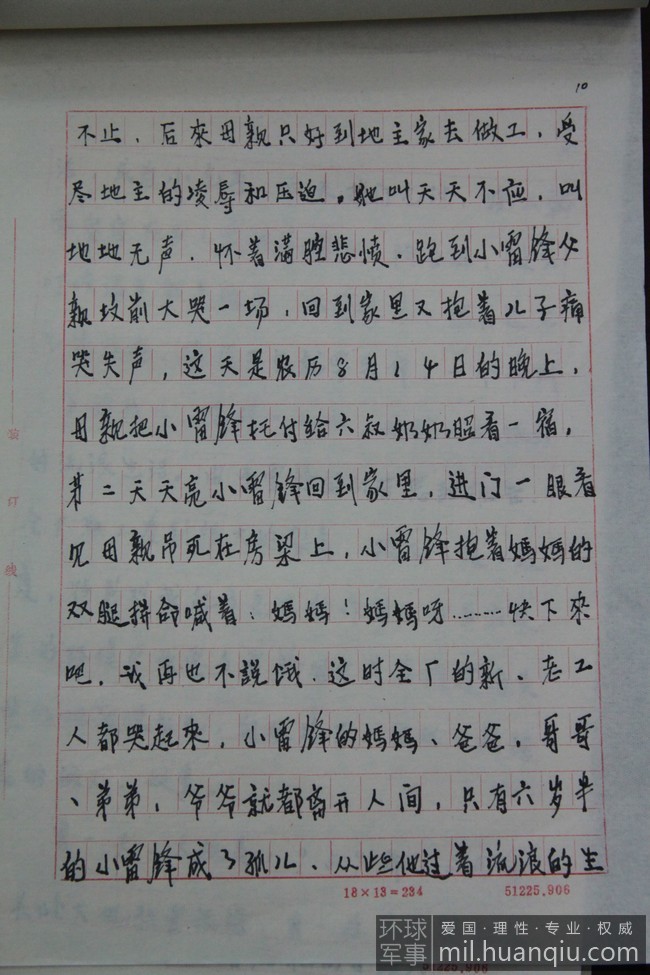 10
不止，后來母親只好到地主家去做工，受
尽地主的凌辱和压迫。她叫天天不应，叫
地地无声，怀着满腔悲愤，跑到小雷锋父
親坟前大哭一场，回到家里又抱着儿子痛
哭失声，这天是农历8月14日的晚上，
母親把小雷锋托付给六叔奶奶照看一宿，
第二天天亮小雷锋回到家里，进门一眼看
见母親吊死在房梁上，小雷锋抱着媽媽的
双腿拼命喊着：媽媽！媽媽呀………快下來
吧，我再也不説饿．这时全厂的新、老工
人都哭起來，小雷锋的媽媽、爸爸，哥哥
、弟弟，爷爷就都离开人间，只有六岁半
的小雷锋成了孤儿、从些他过着流浪的生
装
订
线
18×13=234
51225.906
环球军事
爱国·理性·专业·权威
mil.huanqiu.com
51225.906